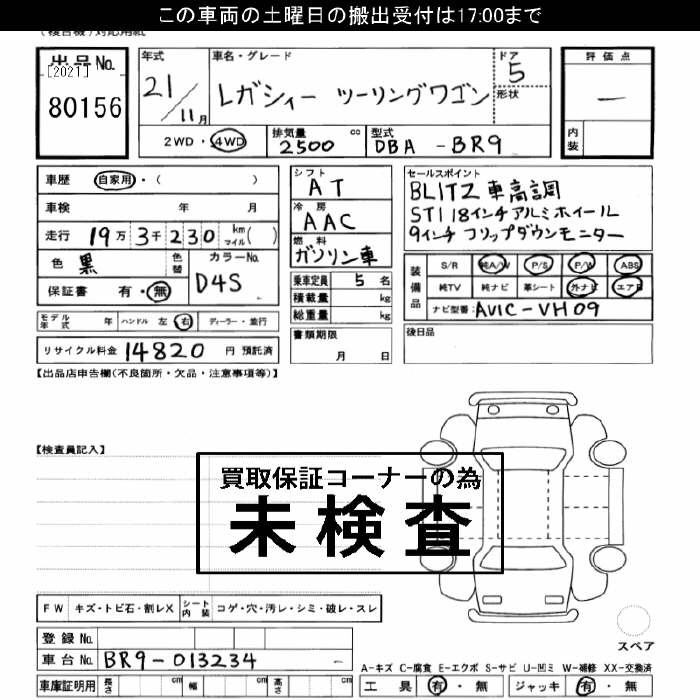 この車両の土曜日の搬出受付は17:00まで
(複合機)対応用紙
出品No.
[2021]
80156
年式
21/11月
車名・グレード
レガシィー ツーリングワゴン
ドア
5
形状
2WD・4WD
排気量 cc
2500
型式
DBA -BR9
評価点
—
内装
車歴 自家用・( )
車検 年 月
走行 19万3千230 km マイル( )
色 黒
色替
カラーNo.
D4S
保証書 有・無
モデル年式 年 ハンドル 左 右 ディーラー・並行
リサイクル料金 14820 円 預託済
シフト
AT
冷房
AAC
燃料
ガソリン車
乗車定員 5 名
積載量 kg
総重量 kg
書類期限
月 日
セールスポイント
BLITZ 車高調
STI 18インチアルミホイール
9インチ フリップダウンモニター
装備品
S/R 純A/W P/S P/W ABS
純TV 純ナビ 革シート 外ナビ エアB
ナビ型番: AVIC-VH09
後日品
【出品店申告欄(不良箇所・欠品・注意事項等)】
【検査員記入】
買取保証コーナーの為
未検査
FW キズ・トビ石・割レX シート内装 コゲ・穴・汚レ・シミ・破レ・スレ
登録No.
車台No. BR9-013234 —
車庫証明用 長さ cm 幅 cm 高さ cm
スペア
A-キズ C-腐食 E-エクボ S-サビ U-凹ミ W-補修 XX-交換済
工具 有・無 ジャッキ 有・無